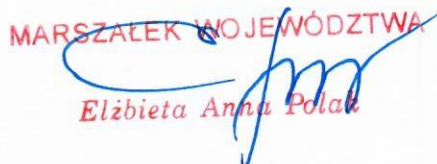 MARSZAŁEK WOJEWÓDZTWA
Elżbieta Anna Polak